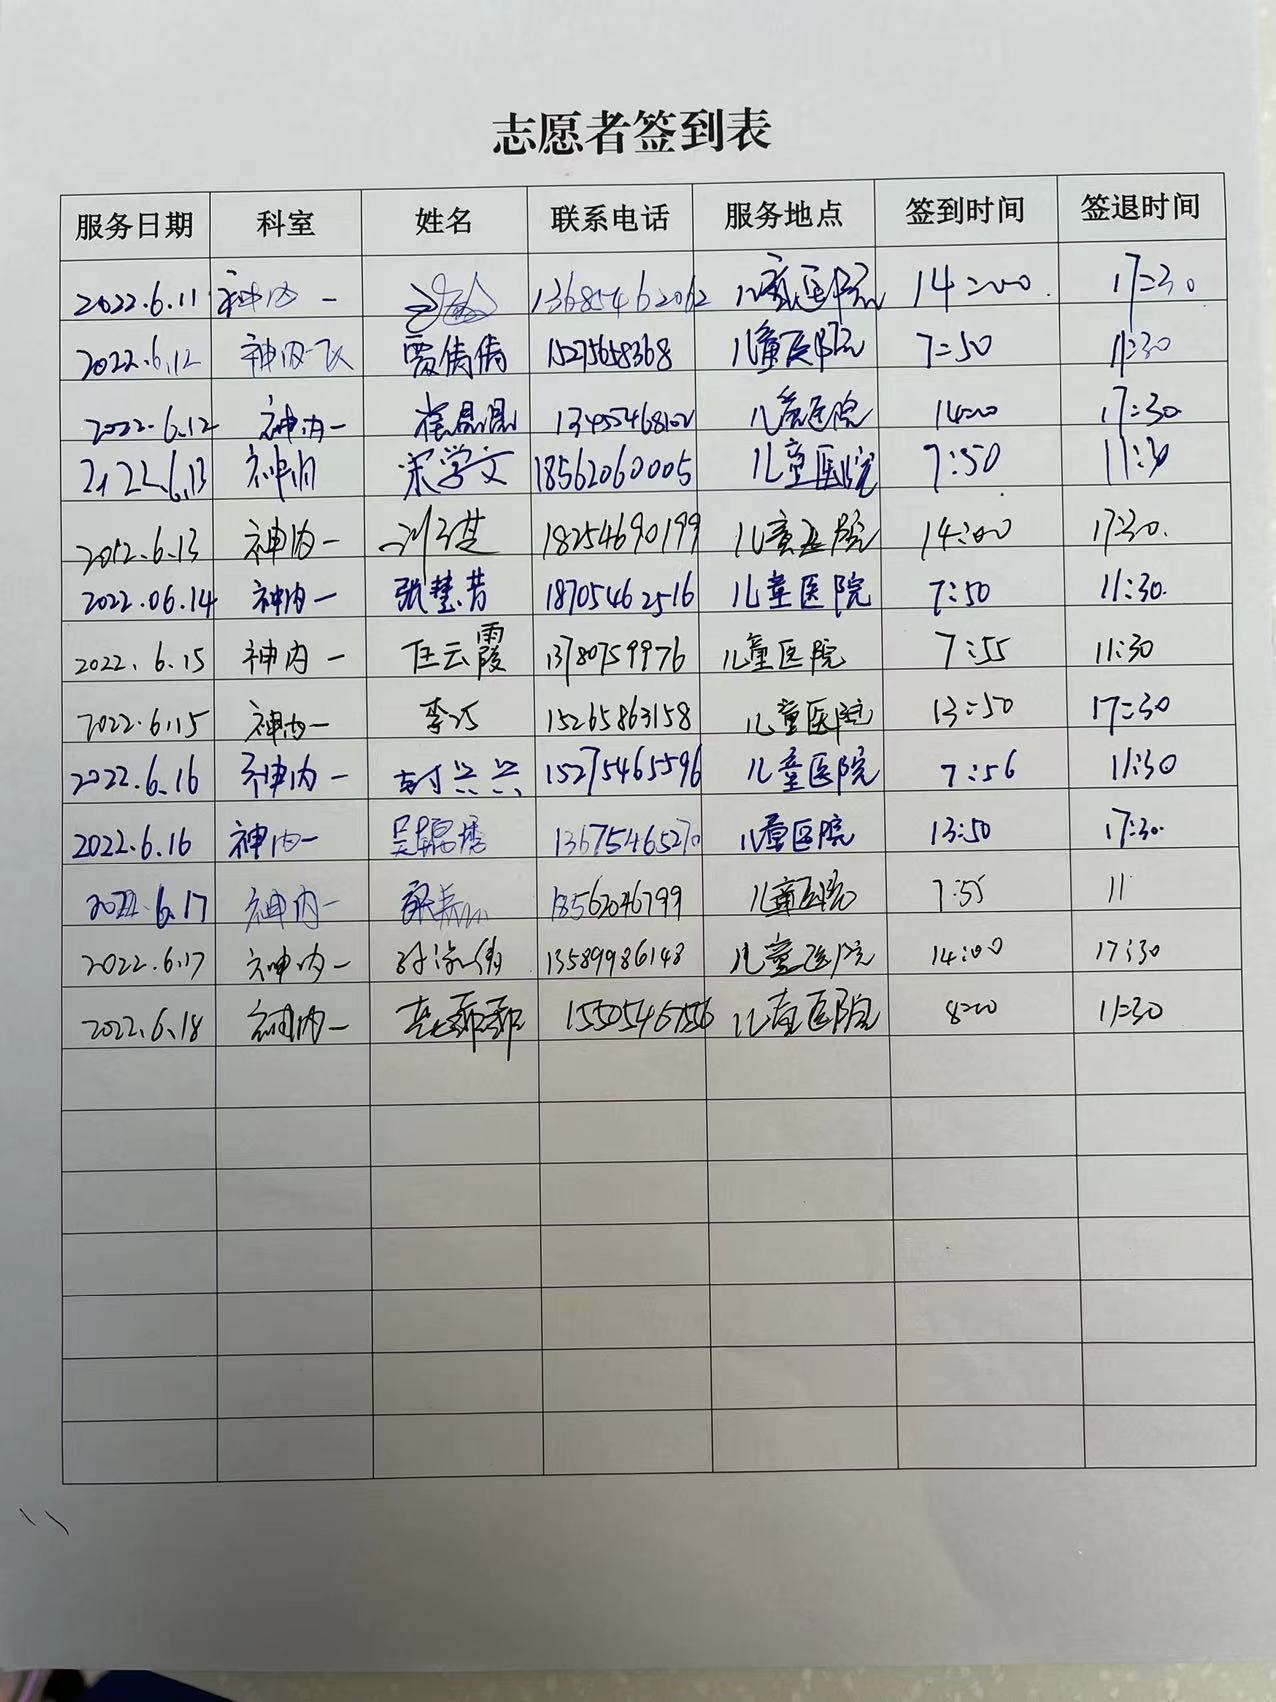 志愿者签到表
服务日期 科室 姓名 联系电话 服务地点 签到时间 签退时间
2022.6.11 神内一 13685462062 儿童医院 14:00 17:30
2022.6.12 神内一 贾倩倩 15275658368 儿童医院 7:50 11:30
2022.6.12 神内一 13455468102 儿童医院 14:00 17:30
2022.6.13 神内 宋学文 18562060005 儿童医院 7:50 11:30
2022.6.13 神内一 18254690199 儿童医院 14:00 17:30.
2022.06.14 神内一 张慧芳 18705462516 儿童医院 7:50 11:30.
2022.6.15 神内一 任云霞 13780759976 儿童医院 7:55 11:30
2022.6.15 神内一 李巧 15265863158 儿童医院 13:50 17:30
2022.6.16 神内一 15275465596 儿童医院 7:56 11:30
2022.6.16 神内一 13675465270 儿童医院 13:50 17:30.
2022.6.17 神内一 18562046799 儿童医院 7:55 11
2022.6.17 神内一 13589986143 儿童医院 14:00 17:30
2022.6.18 神内一 儿童医院 8:00 11:30